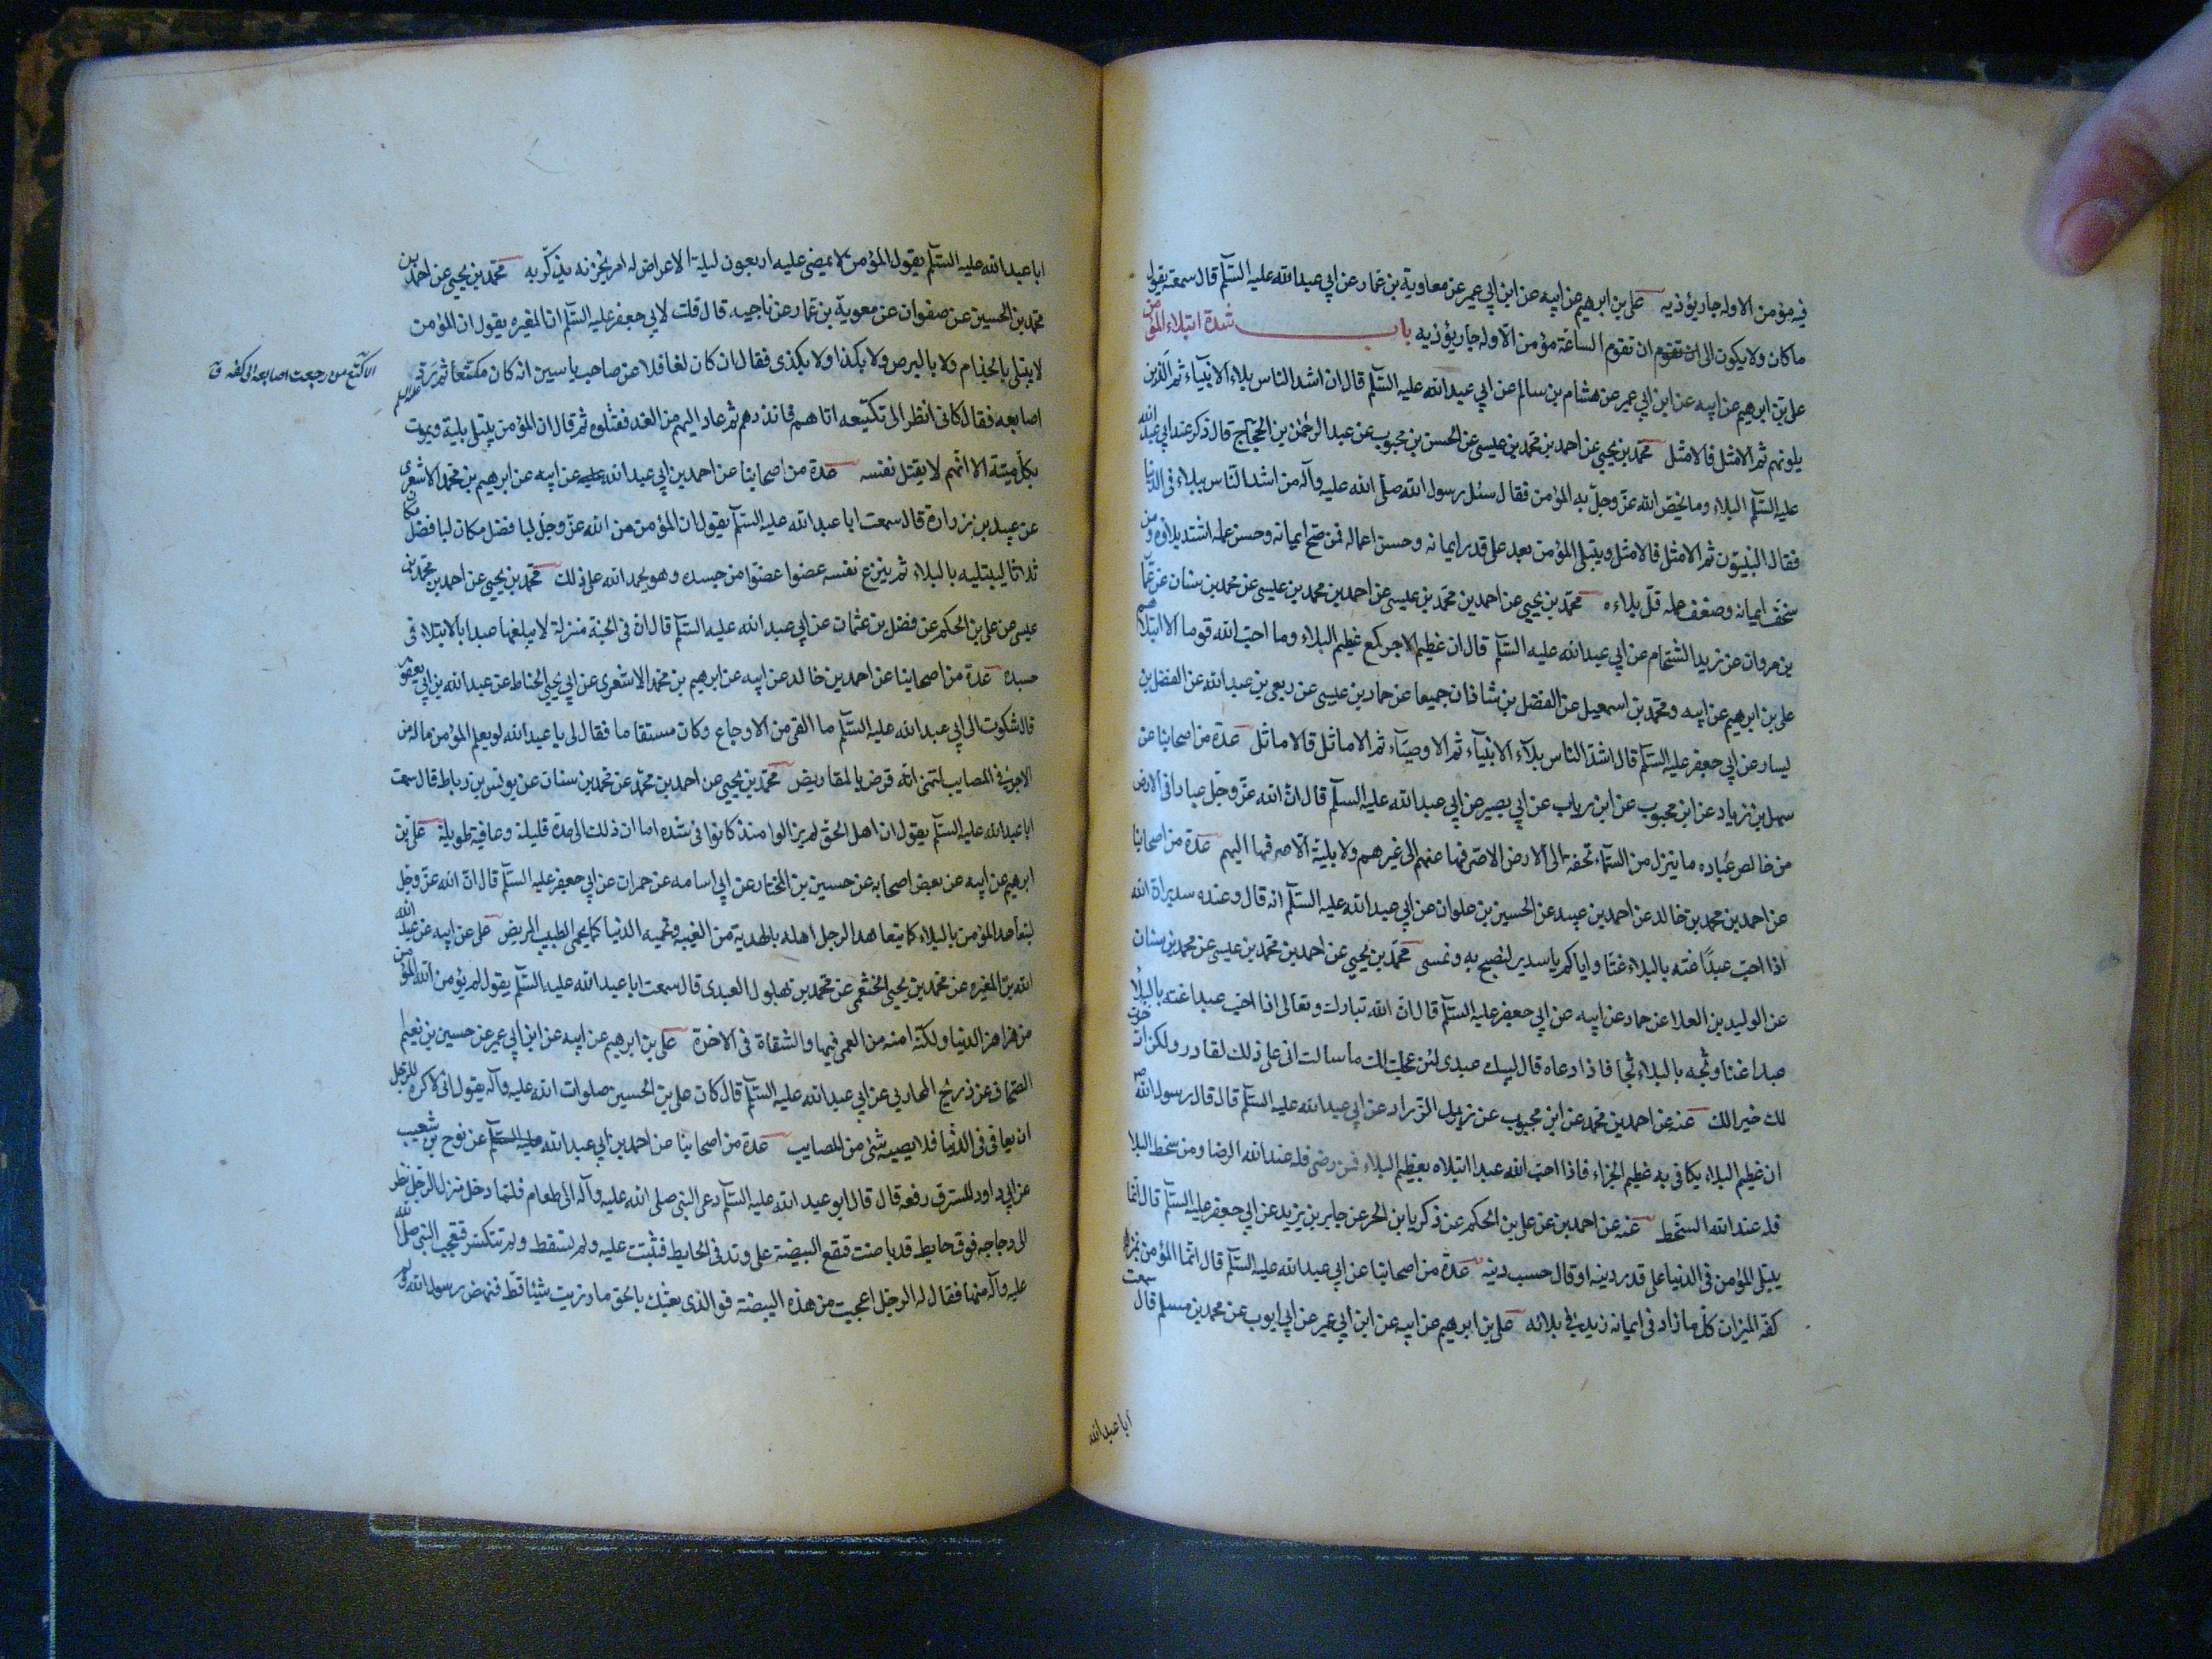 فيه مؤمن الا وله جار يؤذيه علي بن ابرهيم عن ابيه عن ابن ابي عمير عن معاوية بن عمار عن ابي عبدالله عليه السلم قال سمعته يقول
ما كان ولا يكون الى ان تقوم الساعة مؤمن الا وله جار يؤذيه باب شدة ابتلاء المؤمن
علي بن ابرهيم عن ابيه عن ابن ابي عمير عن هشام بن سالم عن ابي عبدالله عليه السلم قال ان اشد الناس بلاء الانبياء ثم الذين
يلونهم ثم الامثل فالامثل محمد بن يحيى عن احمد بن محمد بن عيسى عن الحسن بن محبوب عن عبد الرحمن بن الحجاج قال ذكر عند ابي عبدالله
عليه السلم البلاء وما يخص الله عز وجل به المؤمن فقال سئل رسول الله صلى الله عليه وآله من اشد الناس بلاء في الدنيا
فقال النبيون ثم الامثل فالامثل ويبتلى المؤمن بعد على قدر ايمانه وحسن اعماله فمن صح ايمانه وحسن عمله اشتد بلاؤه ومن
سخف ايمانه وضعف عمله قل بلاءه محمد بن يحيى عن احمد بن محمد بن عيسى عن احمد بن محمد بن عيسى عن محمد بن سنان عن عمار
بن مروان عن زيد الشحام عن ابي عبدالله عليه السلم قال ان عظيم الاجر لمع عظيم البلاء وما احب الله قوما الا ابتلاهم
علي بن ابرهيم عن ابيه ومحمد بن اسمعيل عن الفضل بن شاذان جميعا عن حماد بن عيسى عن ربعي بن عبدالله عن الفضل بن
يسار عن ابي جعفر عليه السلم قال اشد الناس بلاء الانبياء ثم الاوصياء ثم الاماثل فالاماثل عدة من اصحابنا عن
سهل بن زياد عن ابن محبوب عن ابن رياب عن ابي بصير عن ابي عبدالله عليه السلم قال ان الله عز وجل عبادا في الارض
من خالص عباده ما ينزل من السماء تحفة الى الارض الا صرفها عنهم الى غيرهم ولا بلية الا صرفها اليهم عدة من اصحابنا
عن احمد بن محمد بن خالد عن احمد بن عبيد عن الحسين بن علوان عن ابي عبدالله عليه السلم انه قال وعنده سدير ان الله
اذا احب عبدا غته بالبلاء غتا وايا كم يا سدير لنصبح به ونمسي محمد بن يحيى عن احمد بن محمد بن عيسى عن محمد بن سنان
عن الوليد بن العلا عن حماد عن ابيه عن ابي جعفر عليه السلم قال ان الله تبارك وتعالى اذا احب عبدا غته بالبلاء
عبدا غتا وثجه بالبلاء ثجا فاذا دعاه قال لبيك عبدي لئن عجلت لك ما سالت اني على ذلك لقادر ولكن ادخرت
لك خير الك عنه عن احمد بن محمد عن ابن محبوب عن زيد الزراد عن ابي عبدالله عليه السلم قال قال رسول الله ص
ان عظيم البلاء يكافى به عظيم الجزاء فاذا احب الله عبدا ابتلاه بعظيم البلاء فمن رضى فله عند الله الرضا ومن سخط البلا
فله عند الله السخط عنه عن احمد بن عن علي بن الحكم عن زكريا بن الحر عن جابر بن يزيد عن ابي جعفر عليه السلم قال انما
يبتلى المؤمن في الدنيا على قدر دينه او قال حسب دينه عدة من اصحابنا عن ابي عبدالله عليه السلم قال انما المؤمن بمنزلة
كفة الميزان كل ما زاد في ايمانه زيد في بلائه علي بن ابرهيم عن ابيه عن ابن ابي عمير عن ابي ايوب عن محمد بن مسلم قال سمعت
ابا عبدالله
ابا عبدالله عليه السلم يقول المؤمن لا يمضى عليه اربعون ليلة الا عرض له امر يحزنه يذكر به محمد بن يحيى عن احمد بن
محمد بن الحسين عن صفوان عن معوية بن عمار عن ناجيه قال قلت لابي جعفر عليه السلم ان المغيره يقول ان المؤمن
لا يبتلى بالجذام ولا بالبرص ولا بكذا ولا بكذى فقال ان كان لغافلا عن صاحب ياسين انه كان مكنعا ثم رد
اصابعه فقال كانى انظر الى تكنيعه اتاهم فانذرهم ثم عاد اليهم من الغد فقتلوه ثم قال ان المؤمن يبتلى بلية ويموت
بكل ميتة الا انهم لا يقتل نفسه عدة من اصحابنا عن احمد بن ابي عبدالله عن ابيه عن ابرهيم بن محمد الاشعرى
عن عبيد بن زرارة قال سمعت ابا عبدالله عليه السلم يقول ان المؤمن من الله عز وجل لبا فضل مكان لبا فضل مكان
ثلاثا ليبتليه بالبلاء ثم ينزع نفسه عضوا عضوا من جسده وهو يحمد الله على ذلك محمد بن يحيى عن احمد بن محمد بن
عيسى عن علي بن الحكم عن فضل بن عثمان عن ابي عبدالله عليه السلم قال ان في الجنة منزلة لا يبلغها عبدا بالابتلاء في
جسده عدة من اصحابنا عن احمد بن خالد عن ابيه عن ابرهيم بن محمد الاشعرى عن ابي يحيى الحناط عن عبدالله بن ابي يعفور
قال شكوت الى ابي عبدالله عليه السلم ما القى من الاوجاع وكان مستقاما فقال لي يا عبدالله لو يعلم المؤمن ماله من
الاجر في المصايب لتمنى انه قرض بالمقاريض محمد بن يحيى عن احمد بن محمد عن محمد بن سنان عن يونس بن رباط قال سمعت
ابا عبدالله عليه السلم يقول ان اهل الحق لم يزالوا منذ كانوا في شده اما ان ذلك الى مدة قليلة وعافية طويلة علي بن
ابرهيم عن ابيه عن بعض اصحابه عن حسين بن المختار عن ابي اسامه عن حمران عن ابي جعفر عليه السلم قال ان الله عز وجل
ليتعاهد المؤمن بالبلاء كما يتعاهد الرجل اهله بالهدية من الغيبه وتحميه الدنيا كما يحمى الطبيب المريض على عن ابيه عن عبدالله
الله بن المغيره عن محمد بن يحيى الخثعمي عن محمد بن بهلول العبدى قال سمعت ابا عبدالله عليه السلم يقول لم يؤمن الله المؤمن
من هزاهز الدنيا ولكنه امنه من العمى فيها والشقاة في الاخرة علي بن ابرهيم عن ابيه عن ابن ابي عمير عن حسين بن نعيم
الصحاف عن ذريح المحاربي عن ابي عبدالله عليه السلم قال كان علي بن الحسين صلوات الله عليه وآله يقول اني لاكره للرجل
ان يعافى في الدنيا فلا يصيبه شئ من المصايب عدة من اصحابنا عن احمد بن ابي عبدالله عليه السلم عن نوح بن شعيب
عن ابي داود المسترق رفعه قال قال ابو عبد الله عليه السلم دعى النبي صلى الله عليه وآله الى طعام فلما دخل منزل الرجل نظر
الى دجاجه فوق حايط قد باضت فتقع البيضة على وتد في الحايط فثبتت عليه ولم تسقط ولم تنكسر فتعجب النبي صلى الله
عليه وآله منها فقال له الرجل اعجبت من هذه البيضة فوالذى بعثك بالحق ما رزيت شيئا قط فنهض رسول الله ولم
الاكنع من رجعت اصابعه الى كفه ق